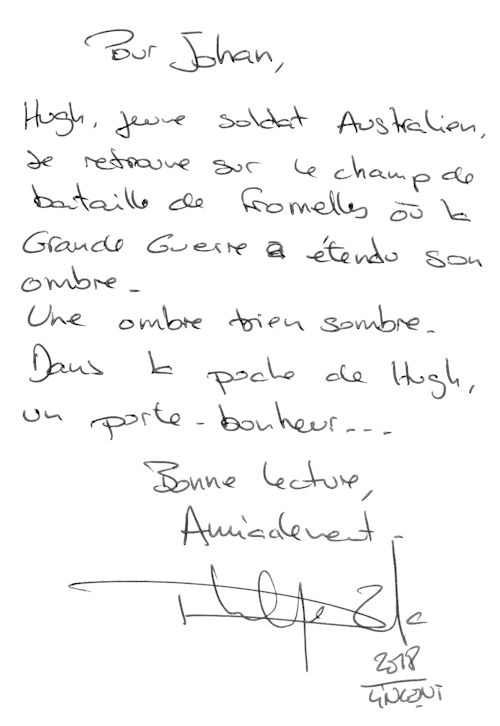 Pour Johan,
Hugh, jeune soldat Australien,
se retrouve sur le champ de
bataille de Fromelles où la
Grande Guerre a étendu son
ombre.
Une ombre bien sombre.
Dans la poche de Hugh,
un porte-bonheur...
Bonne lecture,
Amicalement.
2018